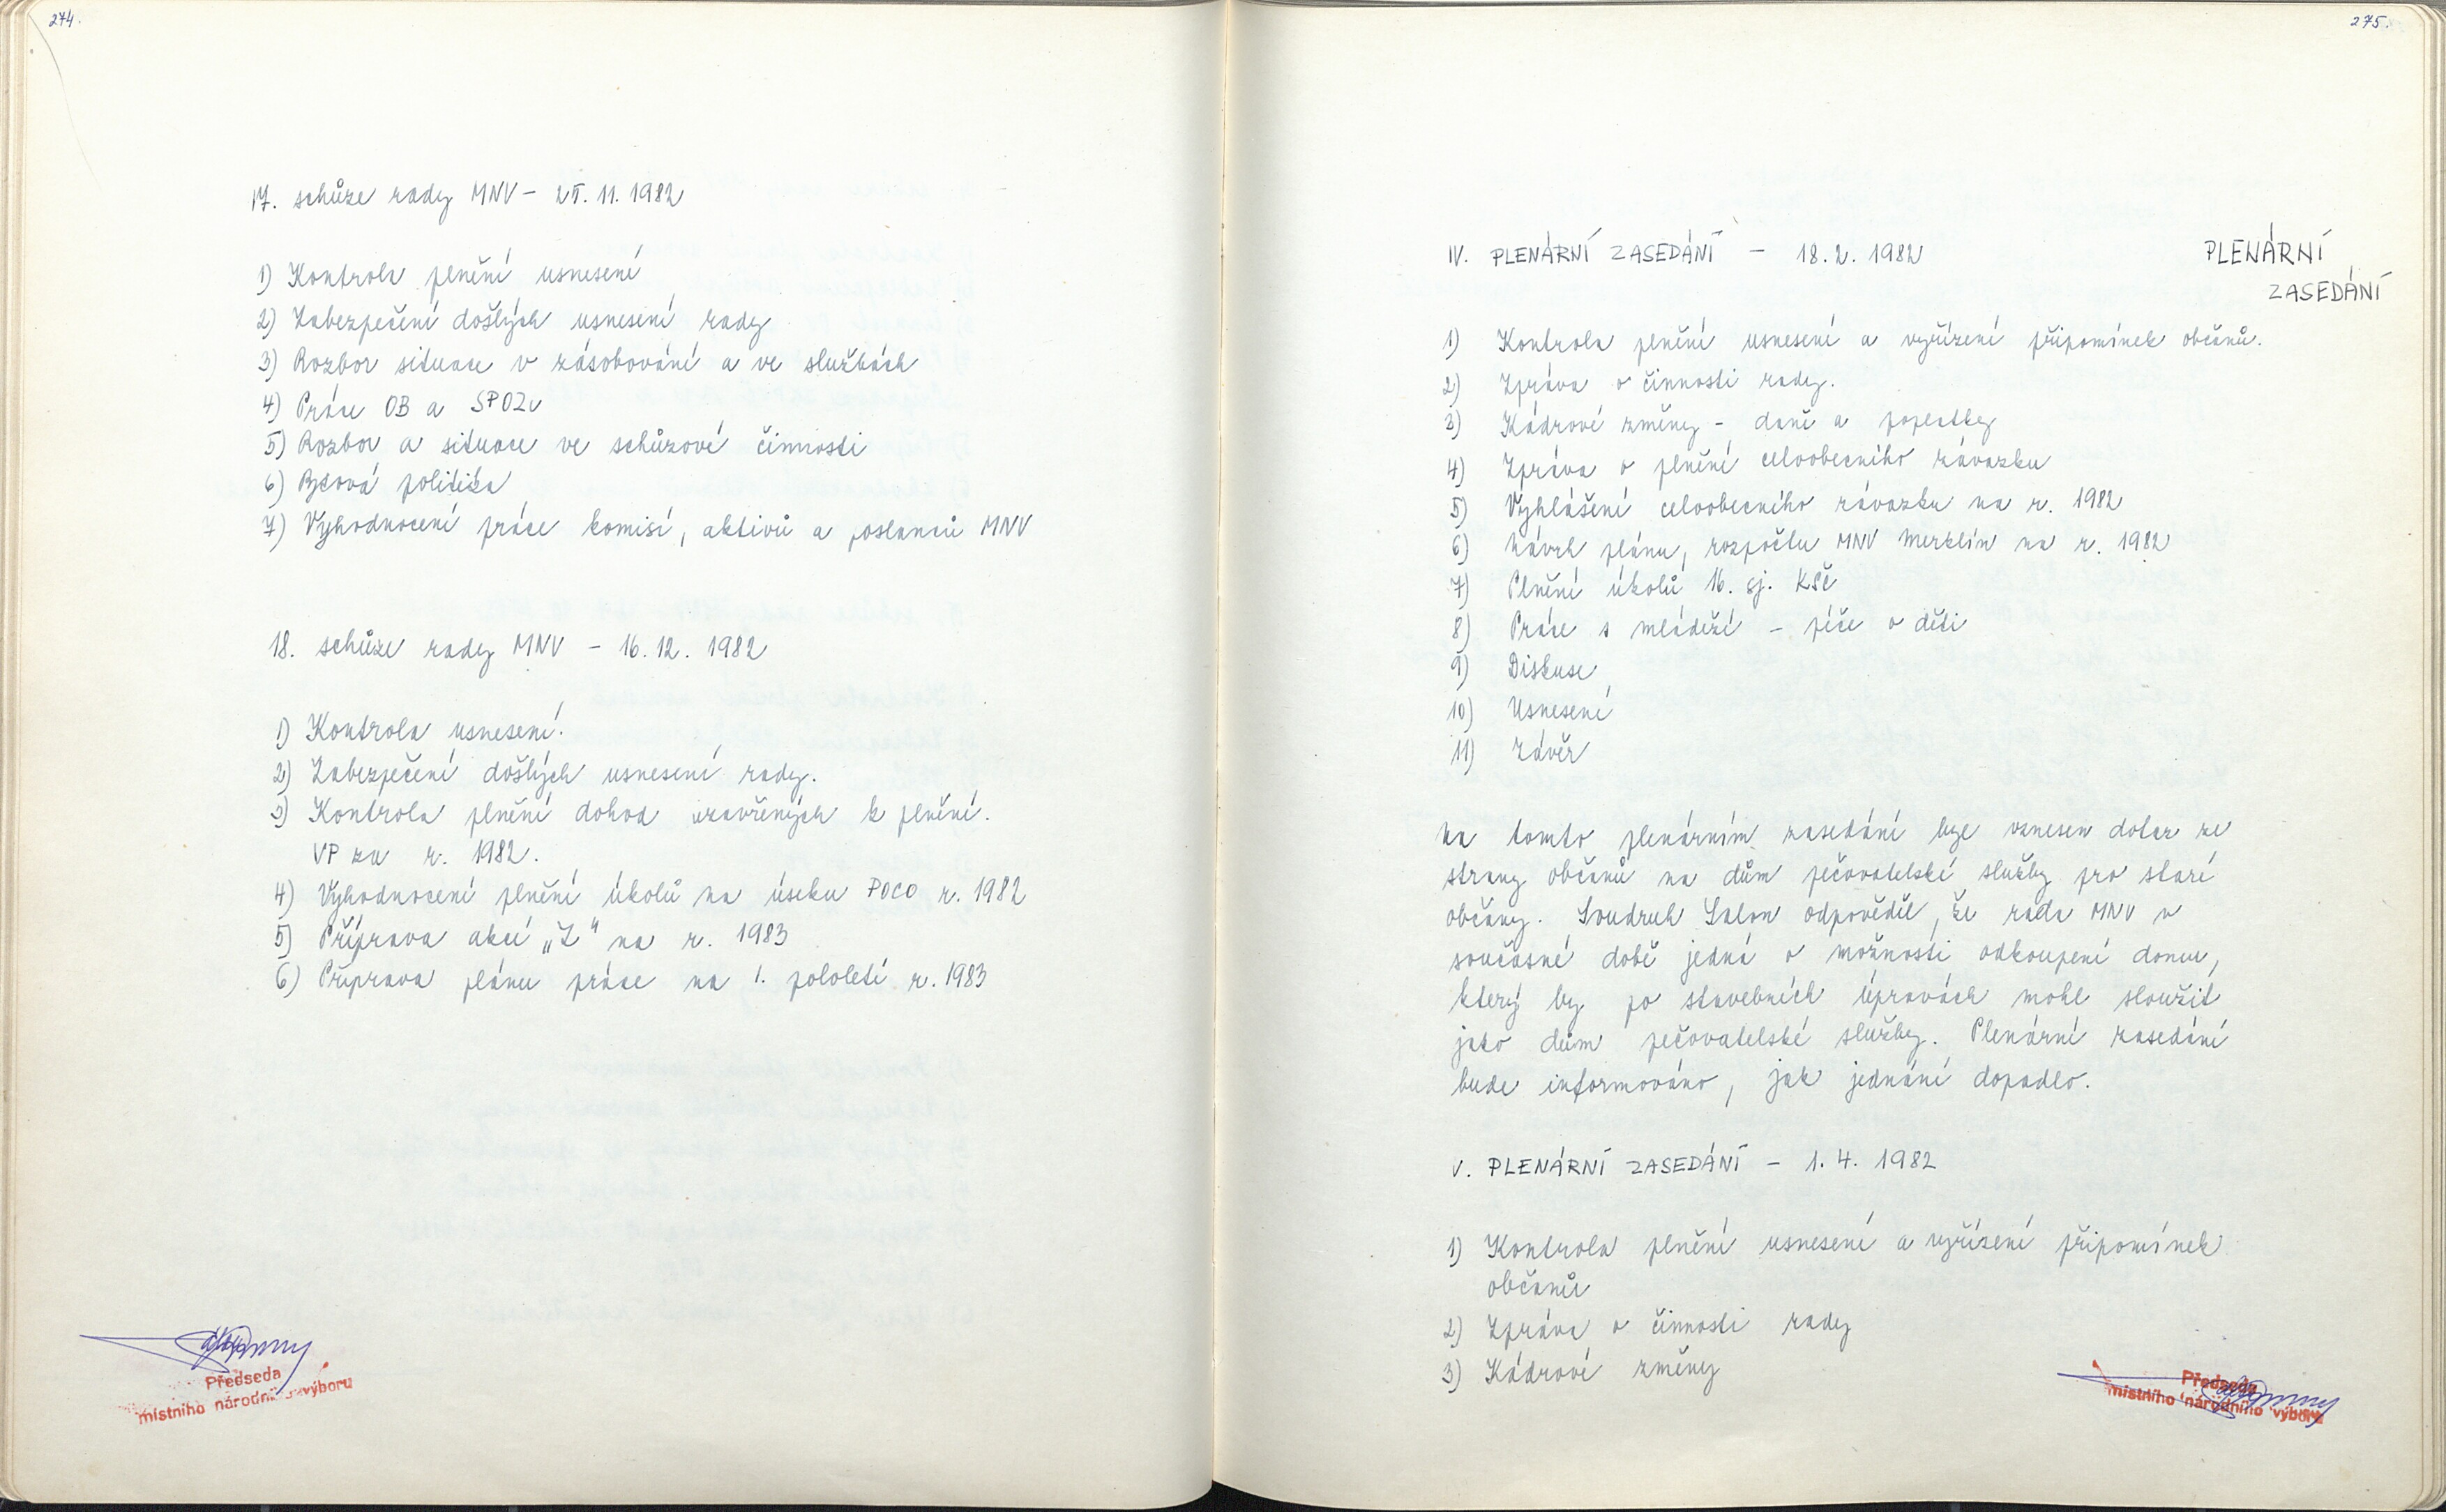 274.
17. schůze rady MNV - 25. 11. 1982
1) Kontrola plnění usnesení
2) Zabezpečení došlých usnesení rady
3) Rozbor situace v zásobování a ve službách
4) Práce OB a SPOZu
5) Rozbor a situace ve schůzové činnosti
6) Bytová politika
7) Vyhodnocení práce komisí, aktivů a poslanců MNV
18. schůze rady MNV - 16. 12. 1982
1) Kontrola usnesení.
2) Zabezpečení došlých usnesení rady.
3) Kontrola plnění dohod uzavřených k plnění.
VP za r. 1982.
4) Vyhodnocení plnění úkolů na úseku POCO r. 1982
5) Příprava akcí „Z" na r. 1983
6) Příprava plánu práce na 1. pololetí r. 1983
Předseda
místního národního výboru
275.
PLENÁRNÍ
ZASEDÁNÍ
IV. PLENÁRNÍ ZASEDÁNÍ - 18. 2. 1982
1) Kontrola plnění usnesení a vyřízení připomínek občanů.
2) Zpráva o činnosti rady.
3) Kádrové změny - daně a poplatky
4) Zpráva o plnění celoobecního závazku
5) Vyhlášení celoobecního závazku na r. 1982
6) Návrh plánu, rozpočtu MNV Merklín na r. 1982
7) Plnění úkolů 16. sj. KSČ
8) Práce s mládeží - péče o děti
9) Diskuse
10) Usnesení
11) Závěr
Na tomto plenárním zasedání byl vznesen dotaz ze
strany občanů na dům pečovatelské služby pro staré
občany. Soudruh Salon odpověděl, že rada MNV v
současné době jedná o možnosti odkoupení domu,
který by po stavebních úpravách mohl sloužit
jako dům pečovatelské služby. Plenární zasedání
bude informováno, jak jednání dopadlo.
V. PLENÁRNÍ ZASEDÁNÍ - 1. 4. 1982
1) Kontrola plnění usnesení a vyřízení připomínek
občanů
2) Zpráva o činnosti rady
3) Kádrové změny
Předseda
místního národního výboru